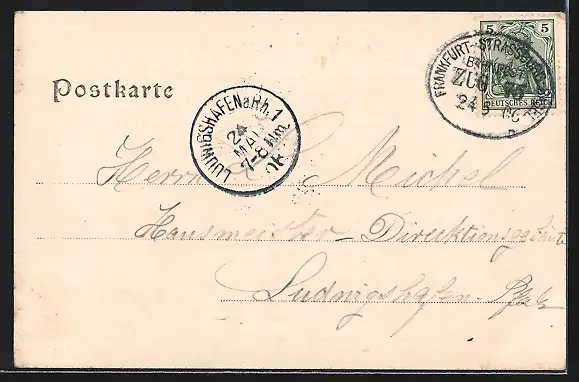 5 5
FRANKFURT-STRASSBURG
BAHNPOST
ZUG
24 5 06
DEUTSCHES REICH
Postkarte
LUDWIGSHAFEN a. Rh. 1
24
MAI
7-8 Nm.
06
Herrn Michel
Hausmeister - Direktionsgebäude
Ludwigshafen Pfalz